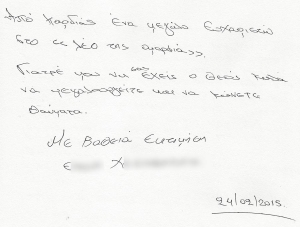 Από Καρδιάς ένα μεγάλο Ευχαριστώ
στο << Λέο της ομορφιάς>>.
Γιατρέ μου να σας έχεις ο Θεός καλα
να μεγαλουργείτε και να κάνετε
θαύματα.
Με Βαθειά Εκτίμηση
Ε Χ
24/02/2015.